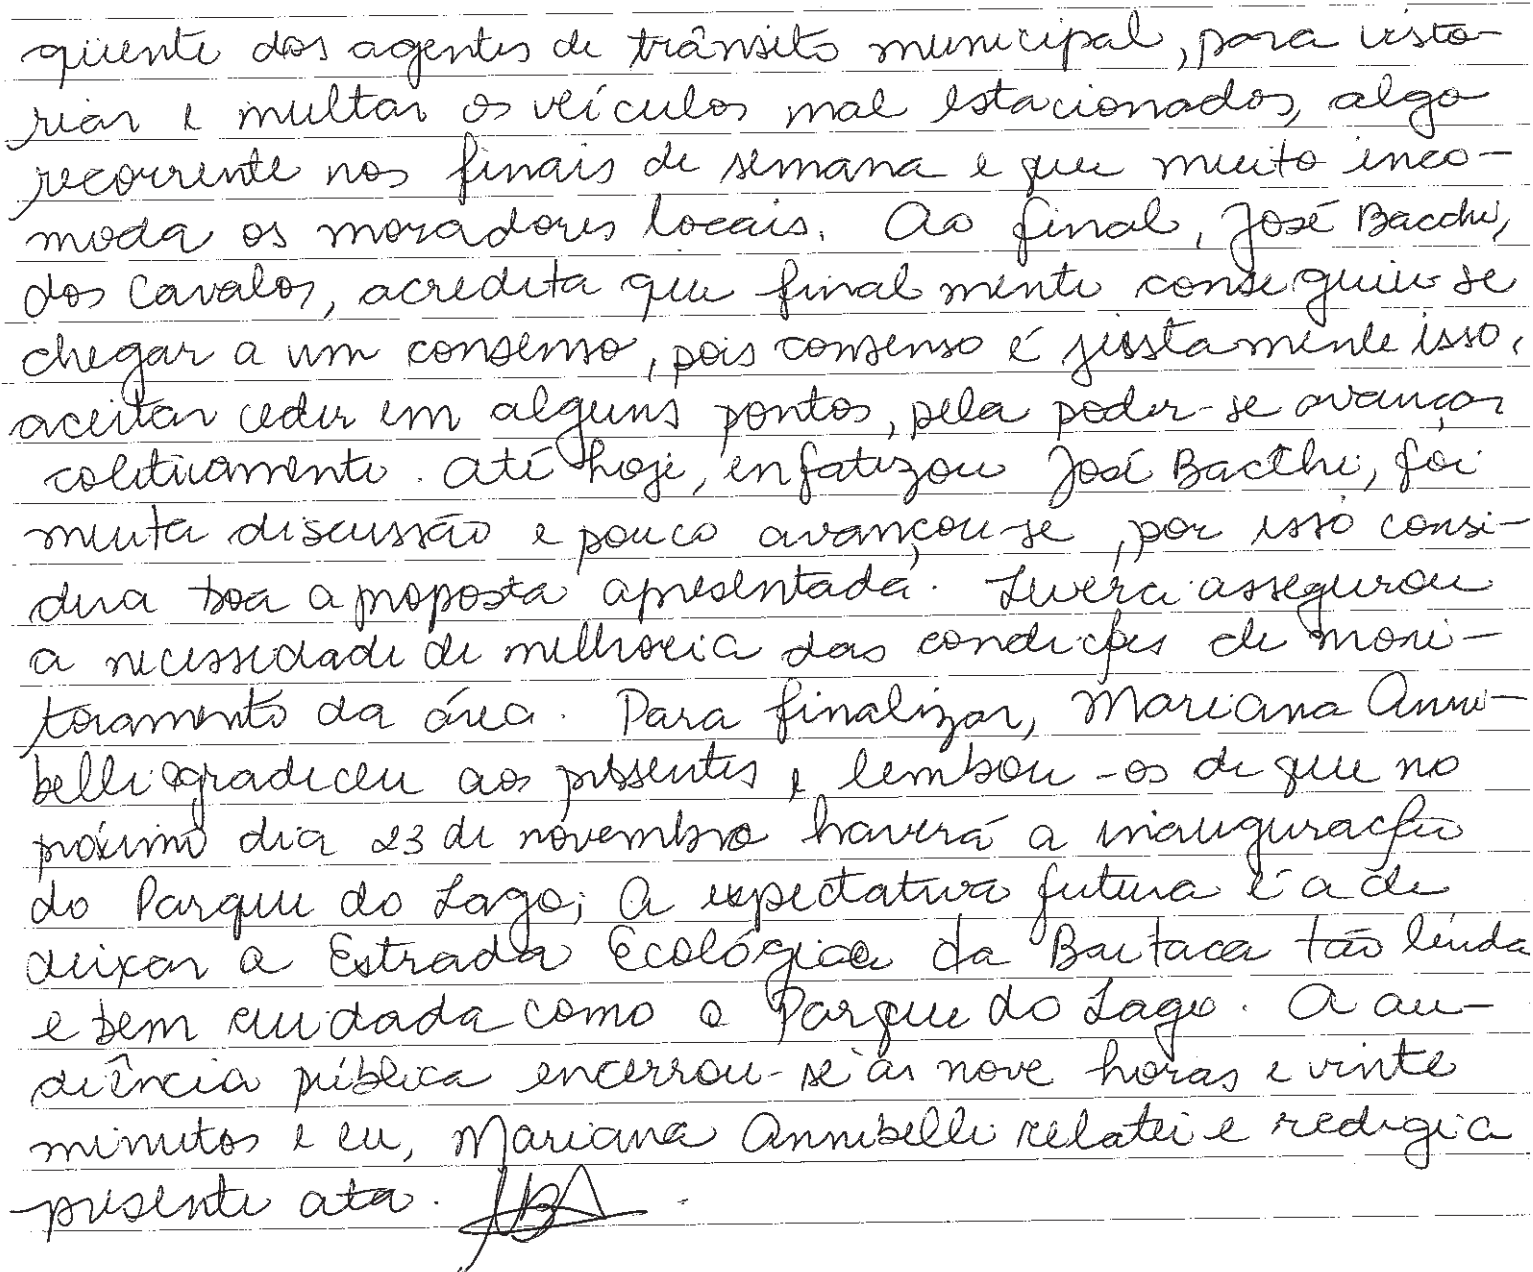 qüente dos agentes de trânsito municipal, para visto-
riar e multar os veículos mal estacionados, algo
recorrente nos finais de semana e que muito inco-
moda os moradores locais. Ao final, José Bacchi,
dos Cavalos, acredita que finalmente conseguiu-se
chegar a um consenso, pois consenso é justamente isso,
aceitar ceder em alguns pontos, pela poder-se avançar
coletivamente. Até hoje, enfatizou José Bacchi, foi
muita discussão e pouco avançou-se, por isso consi-
dera boa a proposta apresentada. assegurou
a necessidade de melhoria das condições de moni-
toramento da área. Para finalizar, Mariana Anni-
belli agradeceu aos presentes e lembrou-os de que no
próximo dia 23 de novembro haverá a inauguração
do Parque do Lago; A expectativa futura é a de
deixar a Estrada Ecológica da Baitaca tão linda
e bem cuidada como o Parque do Lago. A au-
diência pública encerrou-se às nove horas e vinte
minutos e eu, Mariana Annibelli relatei e redigi a
presente ata.